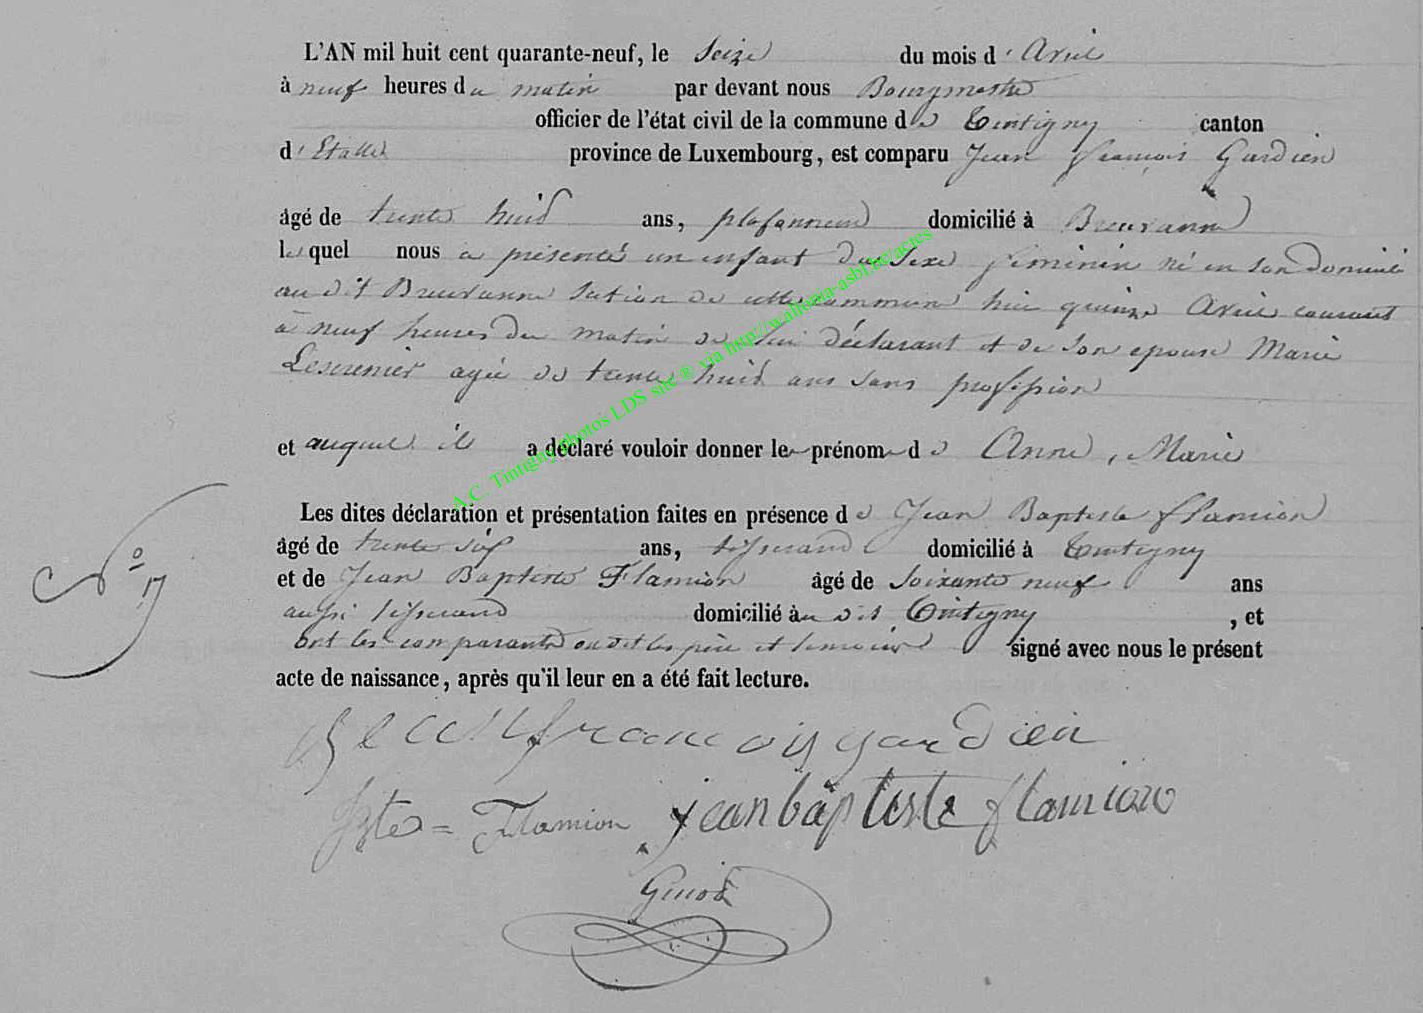 L'AN mil huit cent quarante-neuf, le Seize du mois d'Avril
à neuf heures du matin par devant nous Bourgmestre
officier de l'état civil de la commune de Tintigny canton
d'Etalle province de Luxembourg, est comparu Jean François Gardien
âgé de trente huit ans, plafonneur domicilié à Breuvanne
lequel nous a présenté un enfant du Sexe féminin né en Son domicile
au dit Breuvanne Section de cette commune hier quinze Avril courant
à neuf heures du matin de lui déclarant et de Son epouse Marie
Lescrenier agée de trente huit ans Sans profession
et auquel il a déclaré vouloir donner les prénoms de Anne, Marie
Les dites déclaration et présentation faites en présence de Jean Baptiste Flamion
N° 17
âgé de trente Six ans, tisserand domicilié à Tintigny
et de Jean Baptiste Flamion âgé de Soixante neuf ans
aussi tisserand domicilié au dit Tintigny, et
ont les comparants les père et témoins signé avec nous le présent
acte de naissance, après qu'il leur en a été fait lecture.
francois gardien
Flamion jean baptiste flamion
A.C. Tintigny photos LDS site ® via http://w.allonia-asbl.be/actes